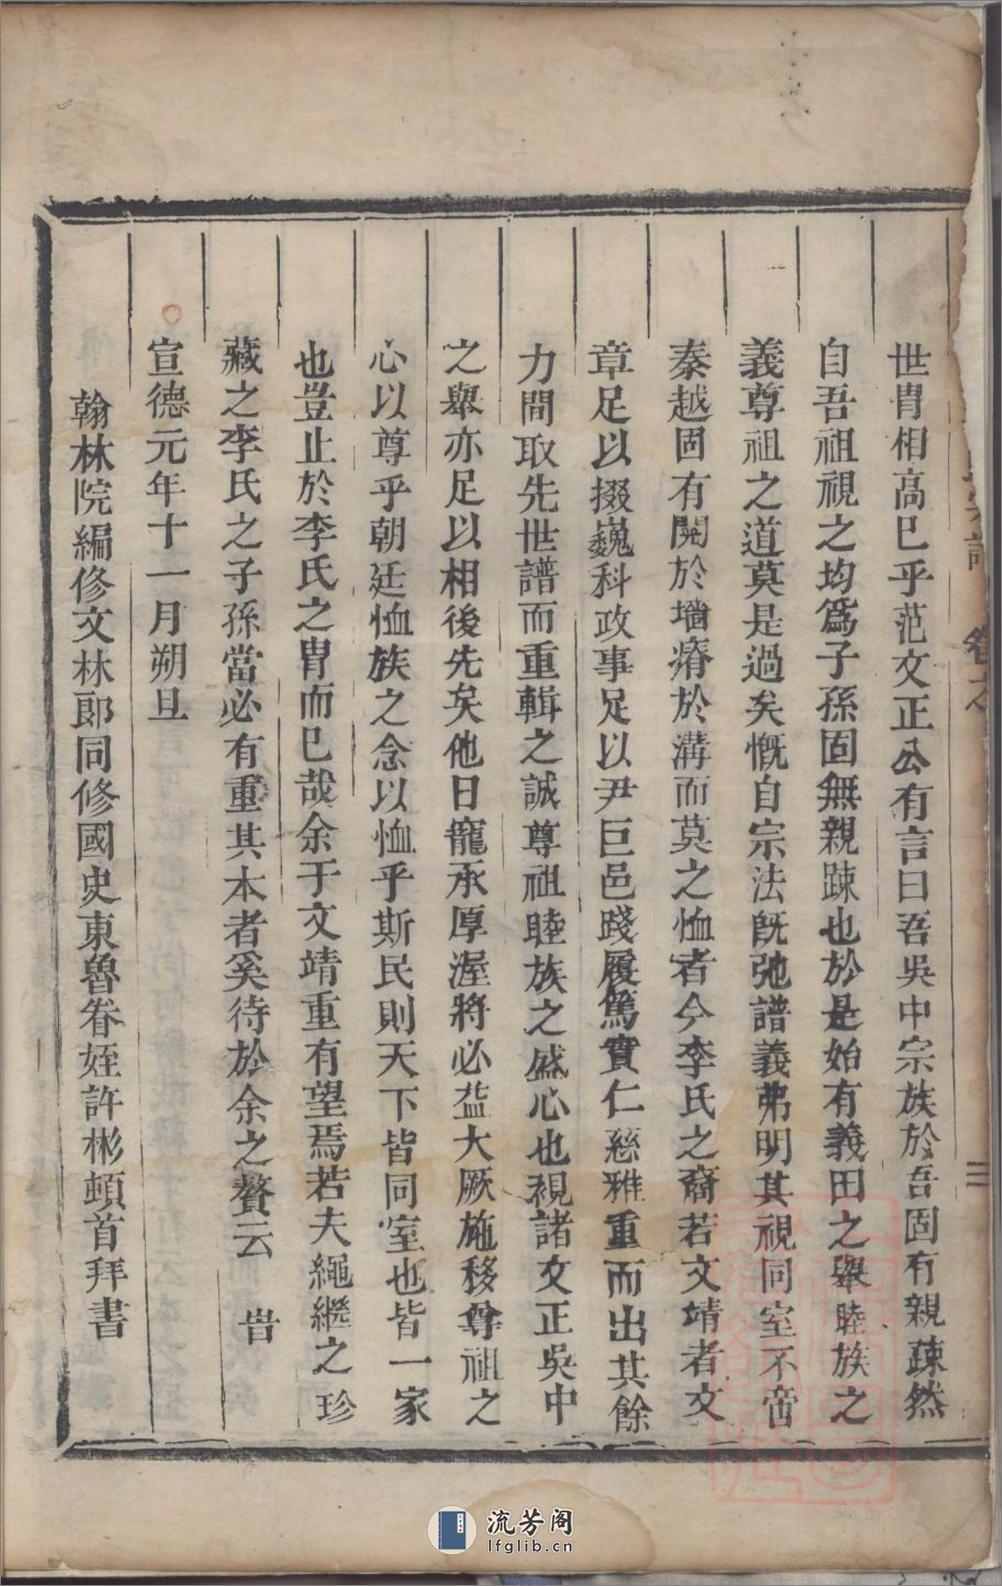 世胄相高已乎范文正公有言曰吾吳中宗族於吾固有親疎然
自吾祖視之均爲子孫固無親踈也於是始有義田之舉睦族之
義尊祖之道莫是過矣慨自宗法旣弛譜義弗明其視同室不啻
秦越固有鬩於墻瘠於溝而莫之恤者今李氏之裔若文靖者文
章足以掇巍科政事足以尹巨邑踐履篤實仁慈雅重而出其餘
力間取先世譜而重輯之誠尊祖睦族之盛心也視諸文正吳中
之舉亦足以相後先矣他日寵承厚渥將必益大厥施移尊祖之
心以尊乎朝廷恤族之念以恤乎斯民則天下皆同室也皆一家
也豈止於李氏之胄而已哉余于文靖重有望焉若夫繩繼之珍
藏之李氏之子孫當必有重其本者奚待於余之贅云 旹
宣德元年十一月朔旦
翰林院編修文林郎同修國史東魯眷姪許彬頓首拜書
卷之
三
流芳阁
lfglib.cn